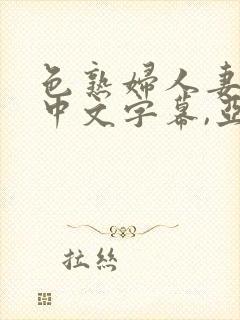 色熟婦人妻
中文字幕,亞
拉絲